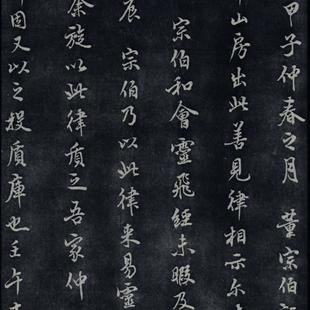 甲子仲春之月 董宗伯
山房出此善見律相示尔
宗伯和會靈飛經未暇及
辰 宗伯乃以此律来易靈
余旋以此律質之吾家仲
固又以之投質庫也壬午